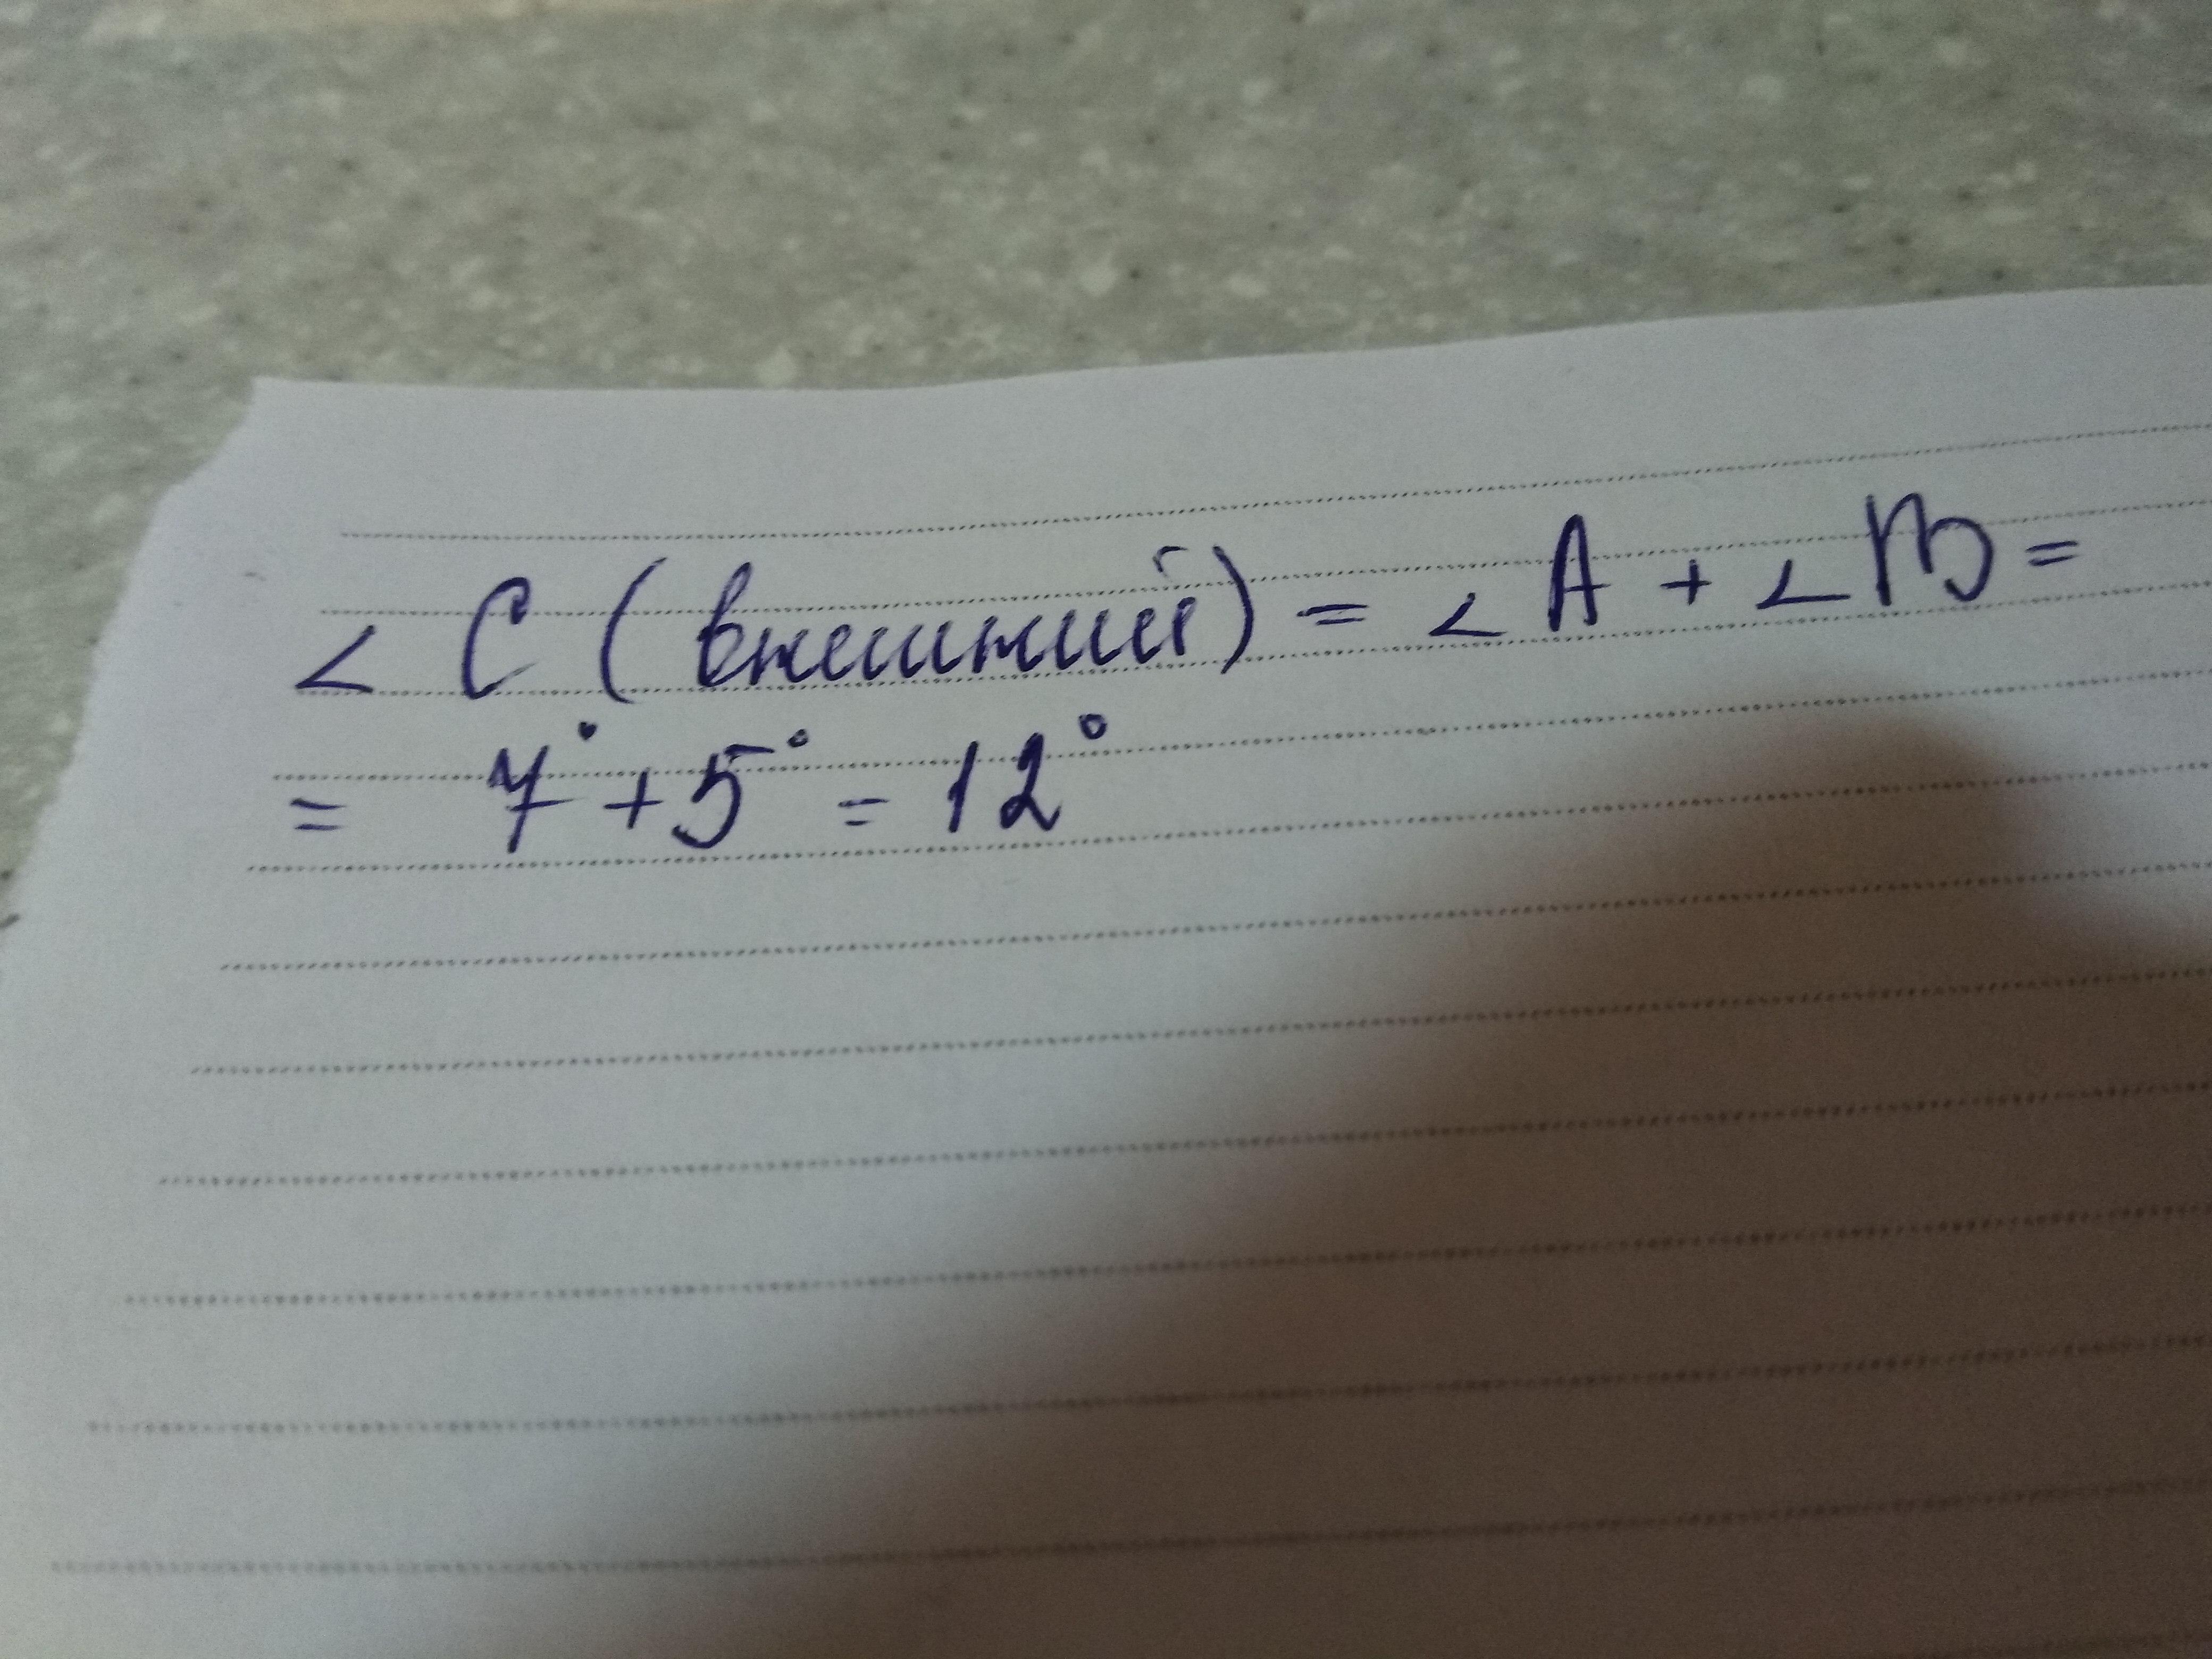 ∠ C (внешний) = ∠ A + ∠ B =
= 7° + 5° = 12°